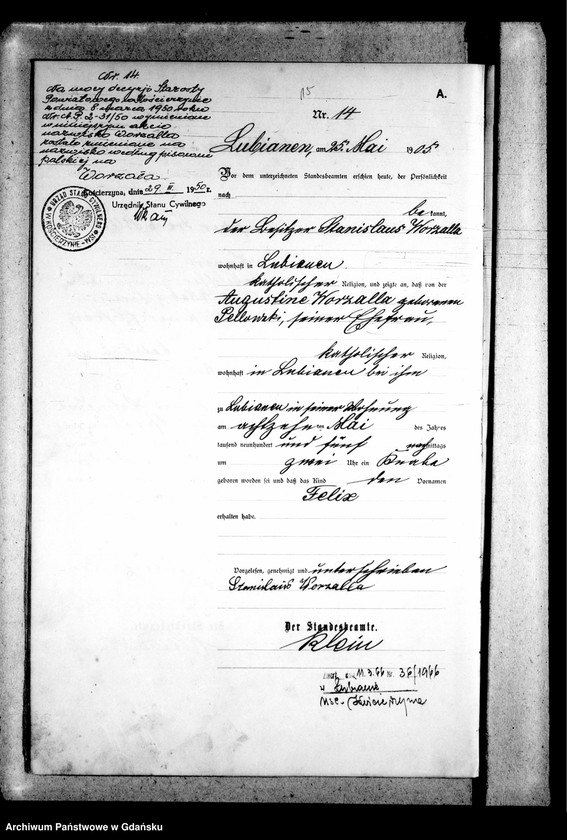 Nr. 14.
Na mocy decyzji Starosty
Powiatowego w Kościerzynie
z dnia 8 marca 1950 roku
Nr ch. P. 2-31/50 wymienione
w niniejszym akcie
nazwisko Worzalla
zostało zmienione na
nazwisko według pisowni
polskiej na
Worzała
Kościerzyna, dnia 29. III. 1950 r.
Urzędnik Stanu Cywilnego
URZĄD STANU CYWILNEGO
W KOŚCIERZYNIE
15
A.
Nr. 14
Lubianen, am 25. Mai 1905
Vor dem unterzeichneten Standesbeamten erschien heute, der Persönlichkeit
nach
bekannt,
der Besitzer Stanislaus Worzalla
wohnhaft in Lubianen
katholischer Religion, und zeigte an, daß von der
Augustine Worzalla geborenen
Pellowski, seiner Ehefrau,
katholischer Religion,
wohnhaft in Lubianen bei ihm
zu Lubianen in seiner Wohnung
am achtzehnten Mai des Jahres
tausend neunhundert und fünf nachmittags
um zwei Uhr ein Knabe
geboren worden sei und daß das Kind den Vornamen
Felix
erhalten habe.
Vorgelesen, genehmigt und unterschrieben
Stanislaus Worzalla
Der Standesbeamte.
Klein
11.3.66 Nr. 36/1966
w
USC -
Archiwum Państwowe w Gdańsku